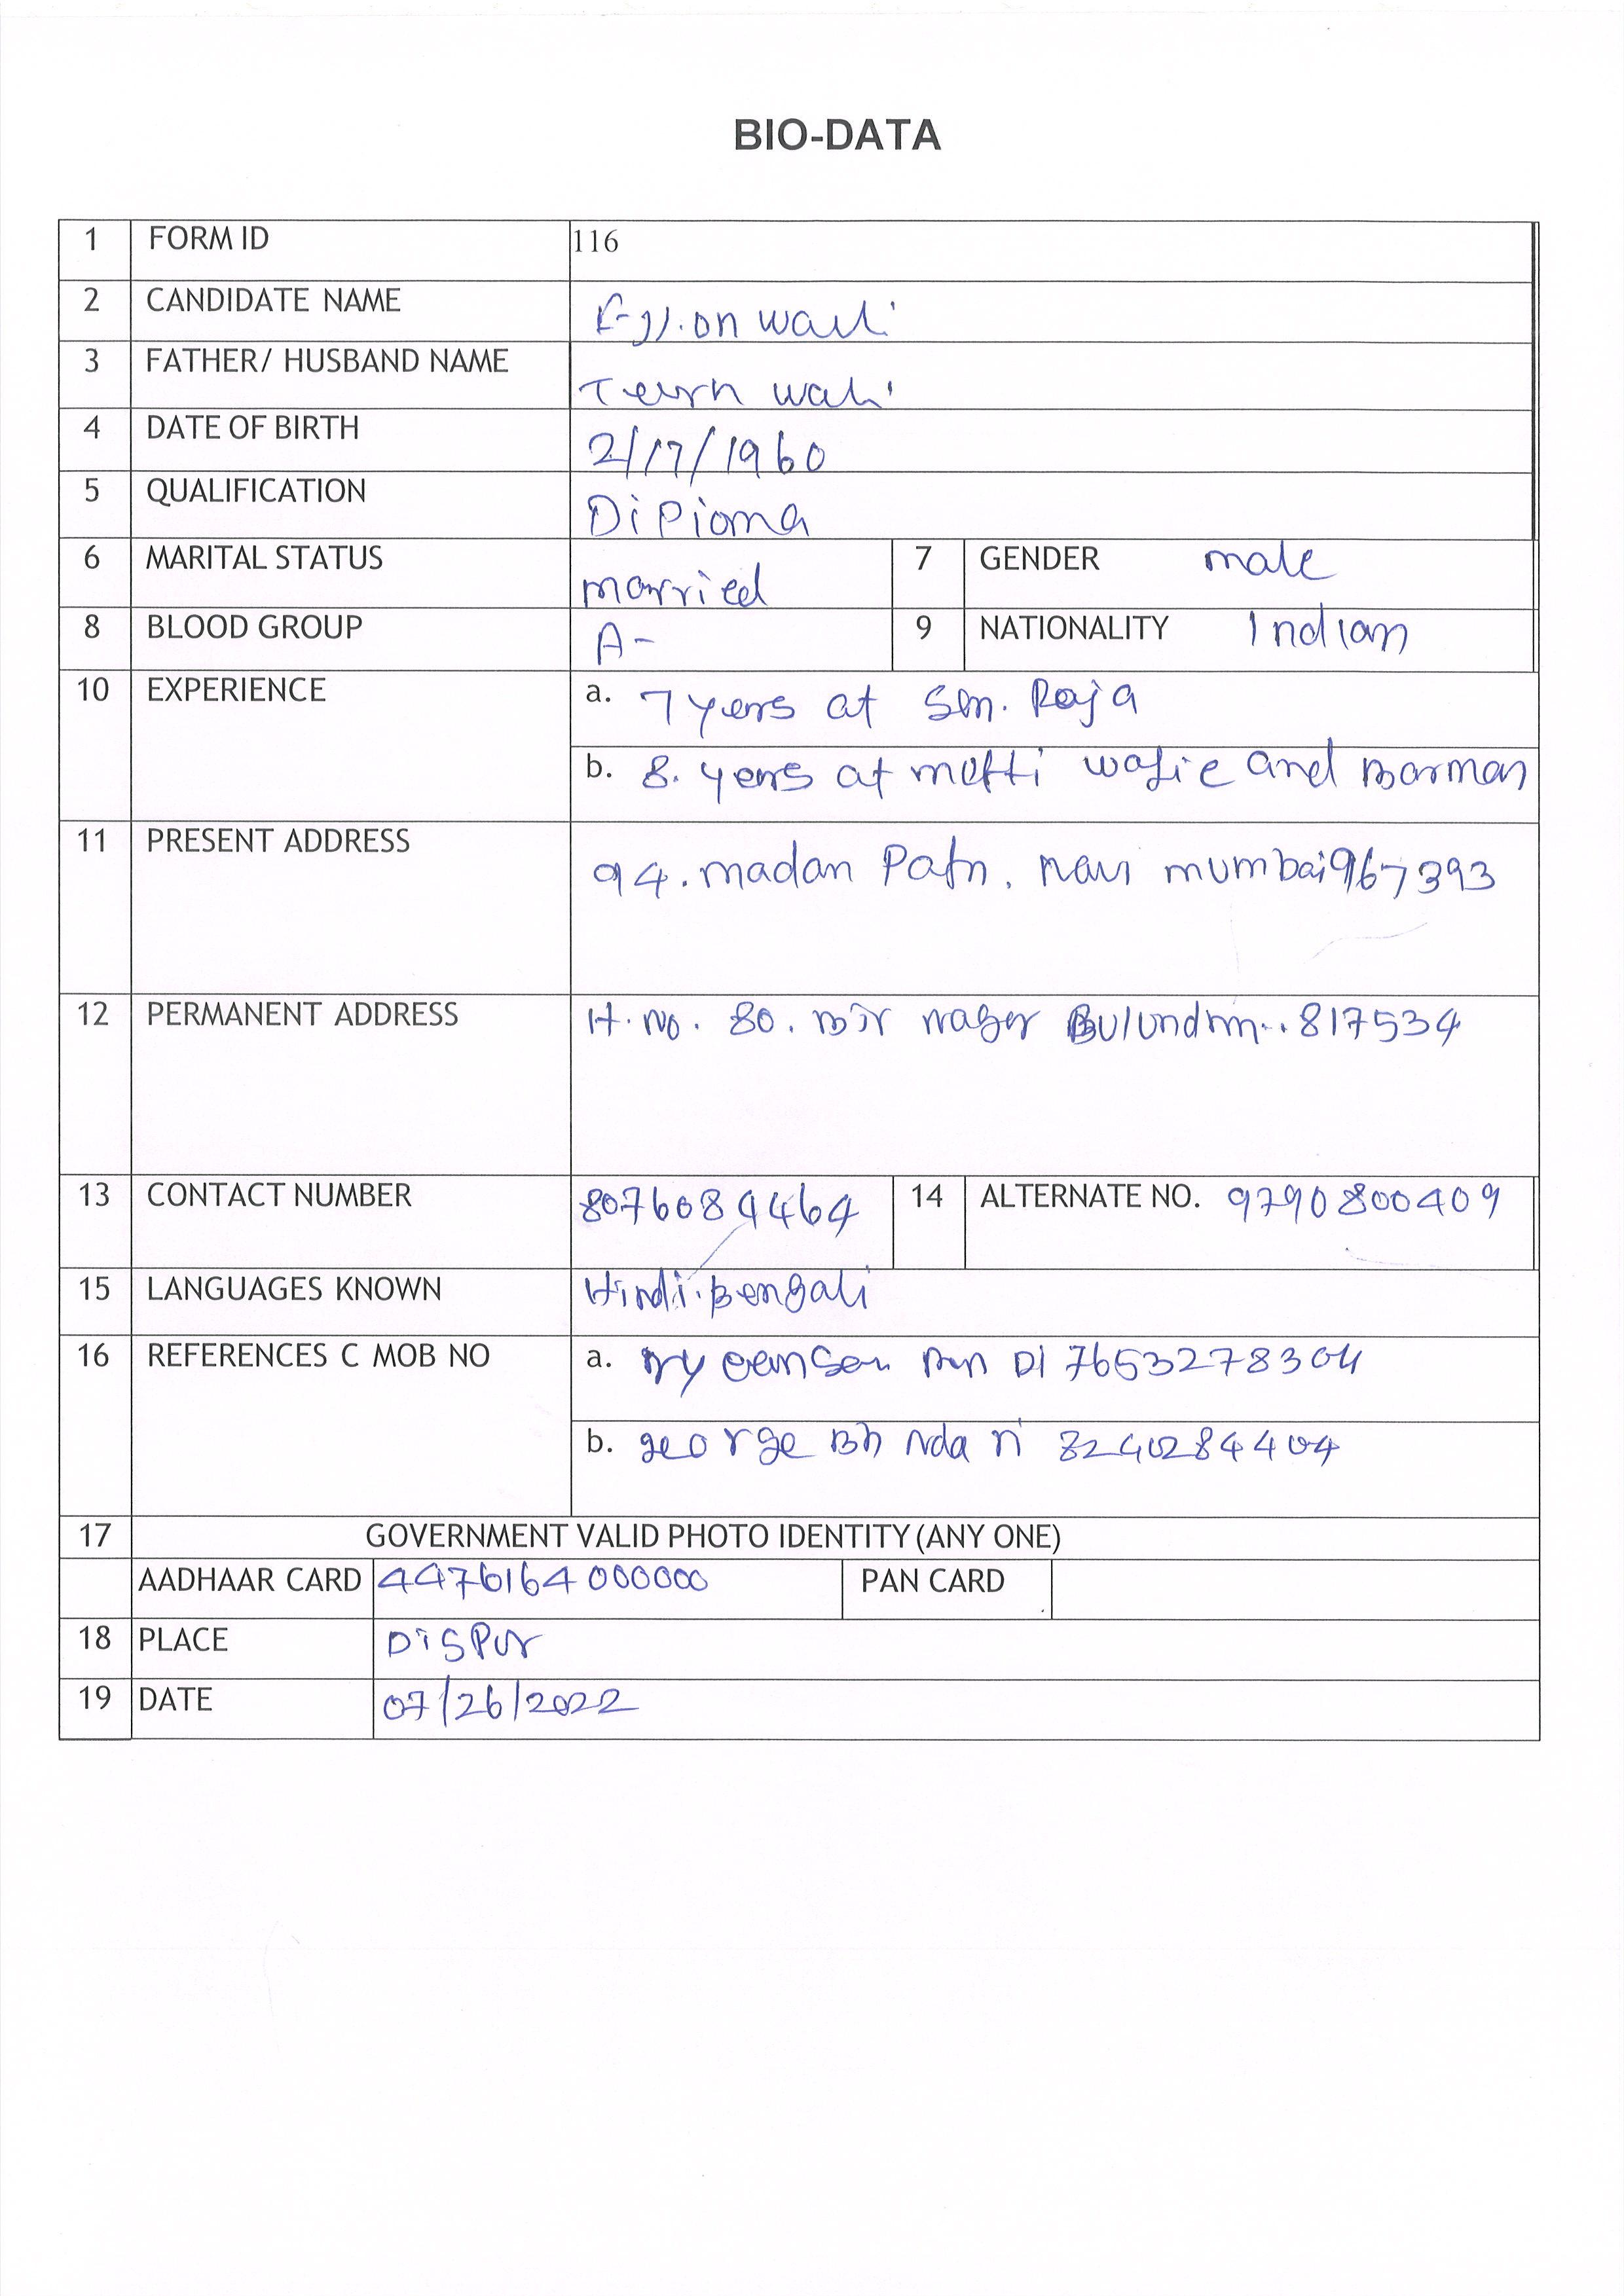 BIO-DATA
1 FORM ID 116
2 CANDIDATE NAME
3 FATHER/ HUSBAND NAME
4 DATE OF BIRTH 2/17/1960
5 QUALIFICATION DiPioma
6 MARITAL STATUS married 7 GENDER male
8 BLOOD GROUP A- 9 NATIONALITY Indian
10 EXPERIENCE a. 7 yers at Sm. Raja
b. 8. years at and Barman
11 PRESENT ADDRESS 94. madan navi mumbai 967393
12 PERMANENT ADDRESS H. No. 80. 817534
13 CONTACT NUMBER 8076084464 14 ALTERNATE NO. 9790800409
15 LANGUAGES KNOWN Hindi. Bengali
16 REFERENCES C MOB NO a. 7653278304
b. george 8240284404
17 GOVERNMENT VALID PHOTO IDENTITY (ANY ONE)
AADHAAR CARD 4476164000000 PAN CARD
18 PLACE DISPUr
19 DATE 07/26/2022